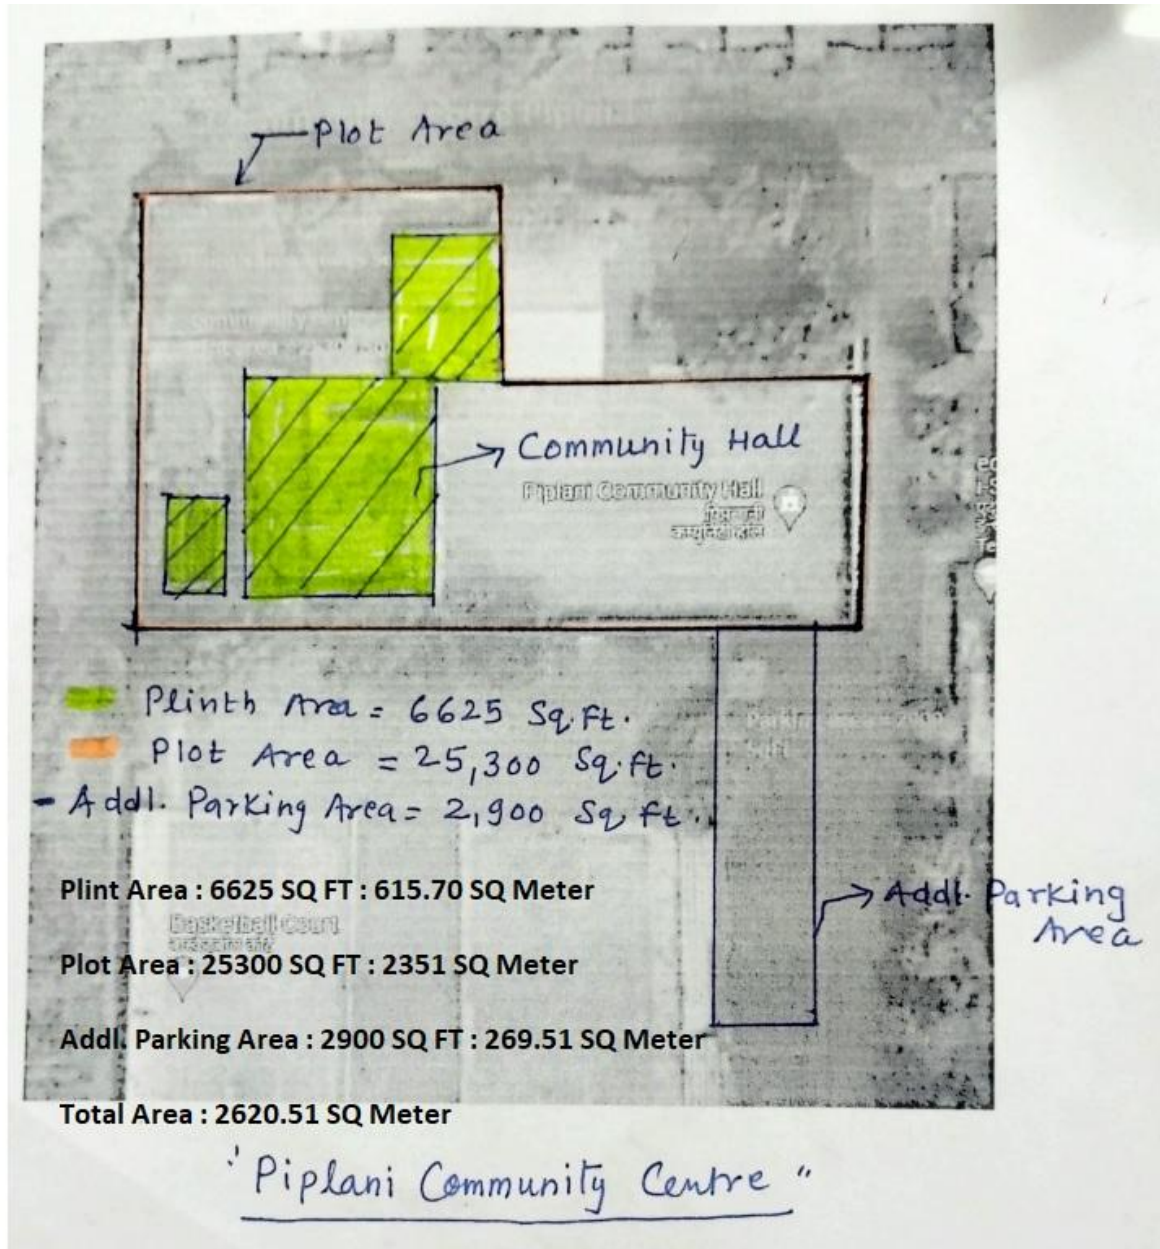 Plot Area
Community Hall
Piplani Community Hall
पिपलानी
कम्युनिटी हॉल
Plinth Area = 6625 Sq.Ft.
Plot Area = 25,300 Sq.ft.
- Addl. Parking Area = 2,900 Sq ft.
Plint Area : 6625 SQ FT : 615.70 SQ Meter
Addl. Parking Area
Basketball Court
Plot Area : 25300 SQ FT : 2351 SQ Meter
Addl. Parking Area : 2900 SQ FT : 269.51 SQ Meter
Total Area : 2620.51 SQ Meter
"Piplani Community Centre"